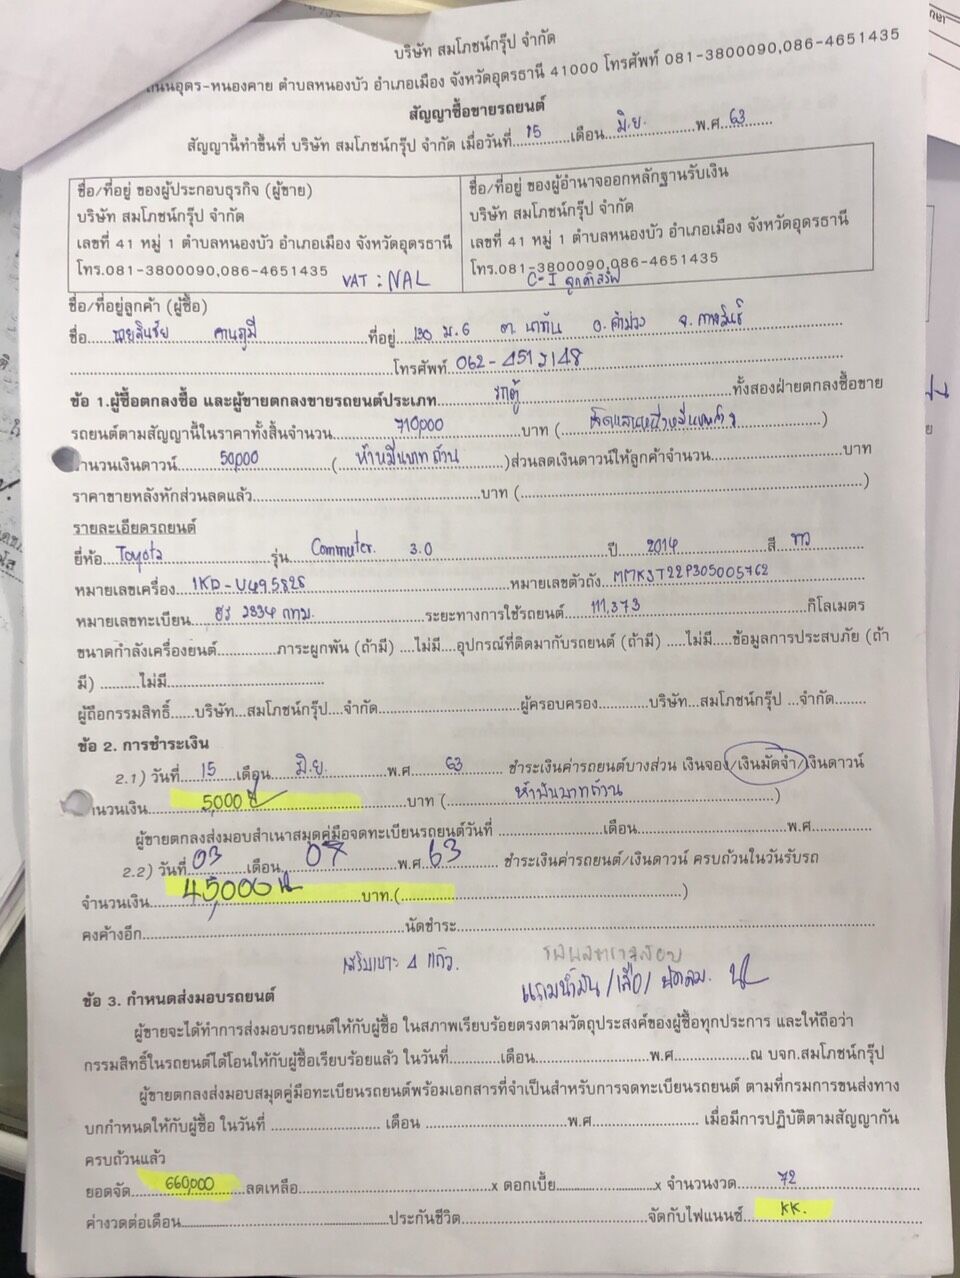 บริษัท สมโภชน์กรุ๊ป จำกัด
ถนนอุดร-หนองคาย ตำบลหนองบัว อำเภอเมือง จังหวัดอุดรธานี 41000 โทรศัพท์ 081-3800090,086-4651435
สัญญาซื้อขายรถยนต์
สัญญานี้ทำขึ้นที่ บริษัท สมโภชน์กรุ๊ป จำกัด เมื่อวันที่ 15 เดือน มิ.ย. พ.ศ. 63
ชื่อ/ที่อยู่ ของผู้ประกอบธุรกิจ (ผู้ขาย)
บริษัท สมโภชน์กรุ๊ป จำกัด
เลขที่ 41 หมู่ 1 ตำบลหนองบัว อำเภอเมือง จังหวัดอุดรธานี
โทร.081-3800090,086-4651435
VAT : NAL
ชื่อ/ที่อยู่ ของผู้อำนาจออกหลักฐานรับเงิน
บริษัท สมโภชน์กรุ๊ป จำกัด
เลขที่ 41 หมู่ 1 ตำบลหนองบัว อำเภอเมือง จังหวัดอุดรธานี
โทร.081-3800090,086-4651435
C-I
ชื่อ/ที่อยู่ลูกค้า (ผู้ซื้อ)
ชื่อ นายสินชัย ที่อยู่ 130 ม.6 ต. นาทัน อ. คำม่วง จ. กาฬสินธุ์
โทรศัพท์ 062-4512148
ข้อ 1.ผู้ซื้อตกลงซื้อ และผู้ขายตกลงขายรถยนต์ประเภท รถตู้ ทั้งสองฝ่ายตกลงซื้อขาย
รถยนต์ตามสัญญานี้ในราคาทั้งสิ้นจำนวน 710,000 บาท ( )
จำนวนเงินดาวน์ 50,000 ( ห้าหมื่นบาทถ้วน )ส่วนลดเงินดาวน์ให้ลูกค้าจำนวน บาท
ราคาขายหลังหักส่วนลดแล้ว บาท ( )
รายละเอียดรถยนต์
ยี่ห้อ Toyota รุ่น Commuter. 3.0 ปี 2014 สี ขาว
หมายเลขเครื่อง 1KD-U495828 หมายเลขตัวถัง MMKST22P305005762
หมายเลขทะเบียน ฮร 2334 กทม. ระยะทางการใช้รถยนต์ 111,373 กิโลเมตร
ขนาดกำลังเครื่องยนต์ ภาระผูกพัน (ถ้ามี) ....ไม่มี....อุปกรณ์ที่ติดมากับรถยนต์ (ถ้ามี) .....ไม่มี.....ข้อมูลการประสบภัย (ถ้า
มี) ..........ไม่มี
ผู้ถือกรรมสิทธิ์......บริษัท...สมโภชน์กรุ๊ป....จำกัด ผู้ครอบครอง บริษัท...สมโภชน์กรุ๊ป ...จำกัด
ข้อ 2. การชำระเงิน
2.1) วันที่ 15 เดือน มิ.ย. พ.ศ 63 ชำระเงินค่ารถยนต์บางส่วน เงินจอง/เงินมัดจำ/เงินดาวน์
จำนวนเงิน 5,000 บาท ( ห้าพันบาทถ้วน )
ผู้ขายตกลงส่งมอบสำเนาสมุดคู่มือจดทะเบียนรถยนต์วันที่ เดือน พ.ศ.
2.2) วันที่ 03 เดือน 07 พ.ศ. 63 ชำระเงินค่ารถยนต์/เงินดาวน์ ครบถ้วนในวันรับรถ
จำนวนเงิน 45,000 บาท.( )
คงค้างอีก นัดชำระ
เสริมเบาะ 4 แถว.
แถมน้ำมัน/เสื้อ/
ข้อ 3. กำหนดส่งมอบรถยนต์
ผู้ขายจะได้ทำการส่งมอบรถยนต์ให้กับผู้ซื้อ ในสภาพเรียบร้อยตรงตามวัตถุประสงค์ของผู้ซื้อทุกประการ และให้ถือว่า
กรรมสิทธิ์ในรถยนต์ได้โอนให้กับผู้ซื้อเรียบร้อยแล้ว ในวันที่ เดือน พ.ศ. ณ บจก.สมโภชน์กรุ๊ป
ผู้ขายตกลงส่งมอบสมุดคู่มือทะเบียนรถยนต์พร้อมเอกสารที่จำเป็นสำหรับการจดทะเบียนรถยนต์ ตามที่กรมการขนส่งทาง
บกกำหนดให้กับผู้ซื้อ ในวันที่ เดือน พ.ศ. เมื่อมีการปฏิบัติตามสัญญากัน
ครบถ้วนแล้ว
ยอดจัด 660,000 ลดเหลือ x ดอกเบี้ย x จำนวนงวด 72
ค่างวดต่อเดือน ประกันชีวิต จัดกับไฟแนนซ์ KK.